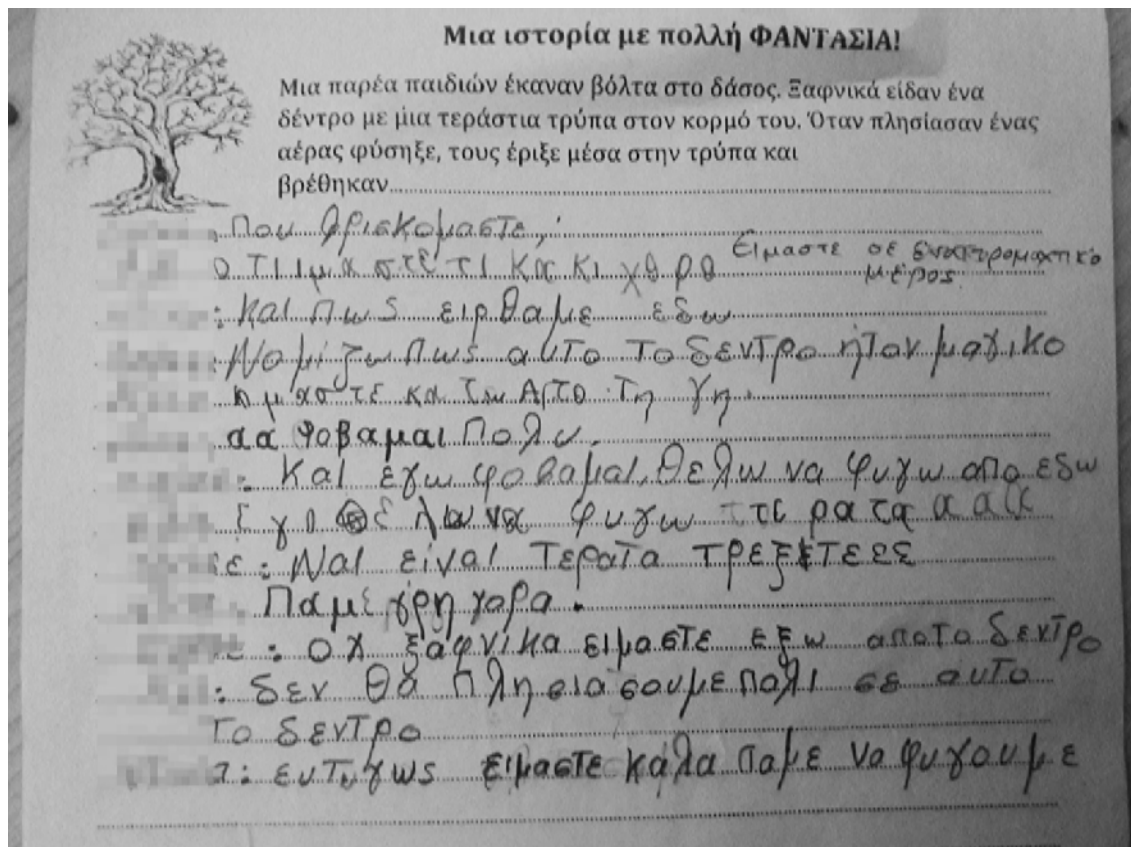 Μια ιστορία με πολλή ΦΑΝΤΑΣΙΑ!
Μια παρέα παιδιών έκαναν βόλτα στο δάσος. Ξαφνικά είδαν ένα
δέντρο με μια τεράστια τρύπα στον κορμό του. Όταν πλησίασαν ένας
αέρας φύσηξε, τους έριξε μέσα στην τρύπα και
βρέθηκαν
Που βρισκομαστε;
Είμαστε σε ένα τρομαχτικό
μέρος.
: Και πως ειρθαμε εδω
: Νομιζω πως αυτο το δεντρο ήταν μαγικο
ημαστε κατω Απο τη γη.
αα φοβαμαι πολυ.
: Και εγω φοβαμαι. θελω να φυγω απο εδω
εγο θελω να φυγω τερατα α α α
ε: Ναι είναι τερατα τρεξετεεε
Παμε γρηγορα.
: οχ ξαφνικα ειμαστε εξω απο το δεντρο
: δεν θα πλησιασουμε παλι σε αυτο
το δεντρο
: ευτυχως ειμαστε καλα παμε να φυγουμε